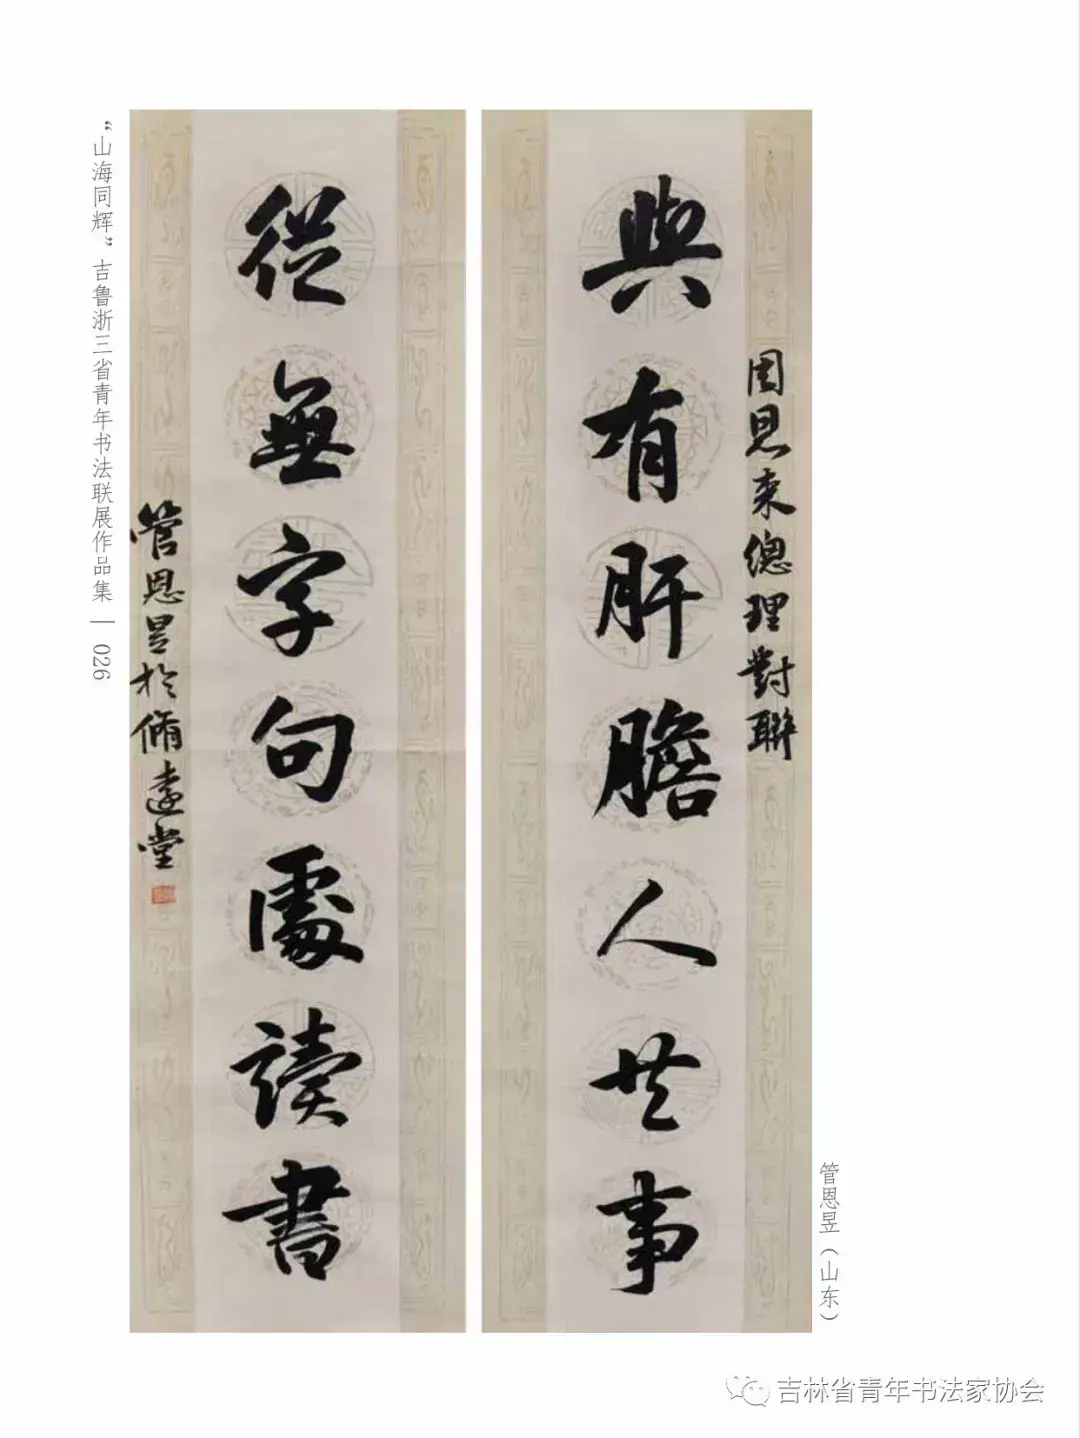 周恩来總理對聯
與有肝膽人共事
從無字句處讀書
管恩昱於脩遠堂
“山海同辉”吉鲁浙三省青年书法联展作品集 | 026
管恩昱（山东）
吉林省青年书法家协会